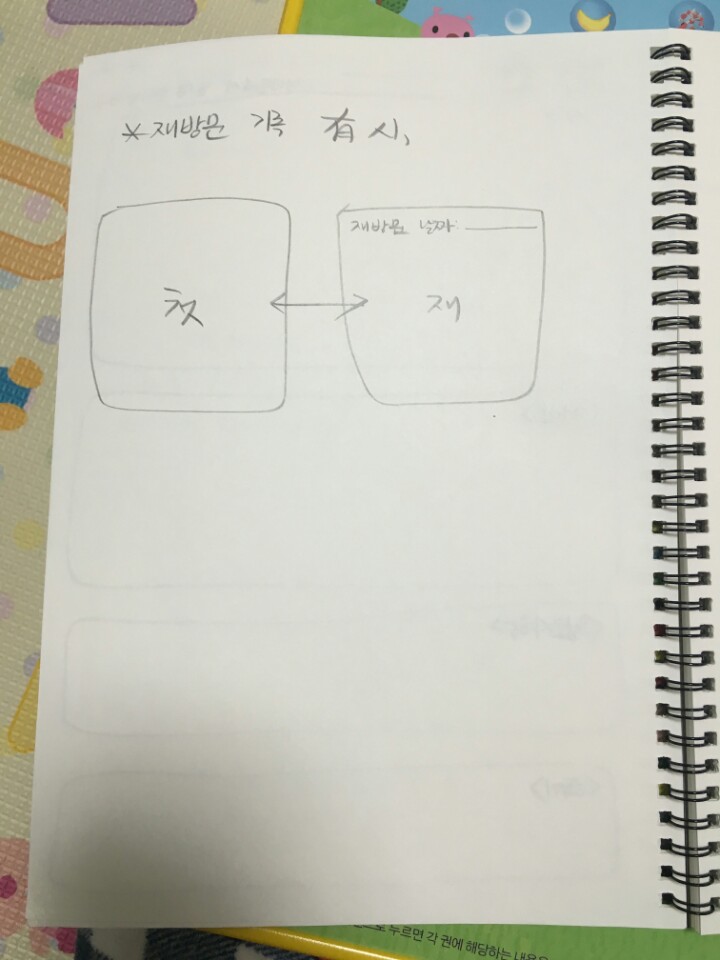 *재방문 기록 有 시,
재방문 날짜:
첫
재
으로 누르면 각 권에 해당하는 내용을